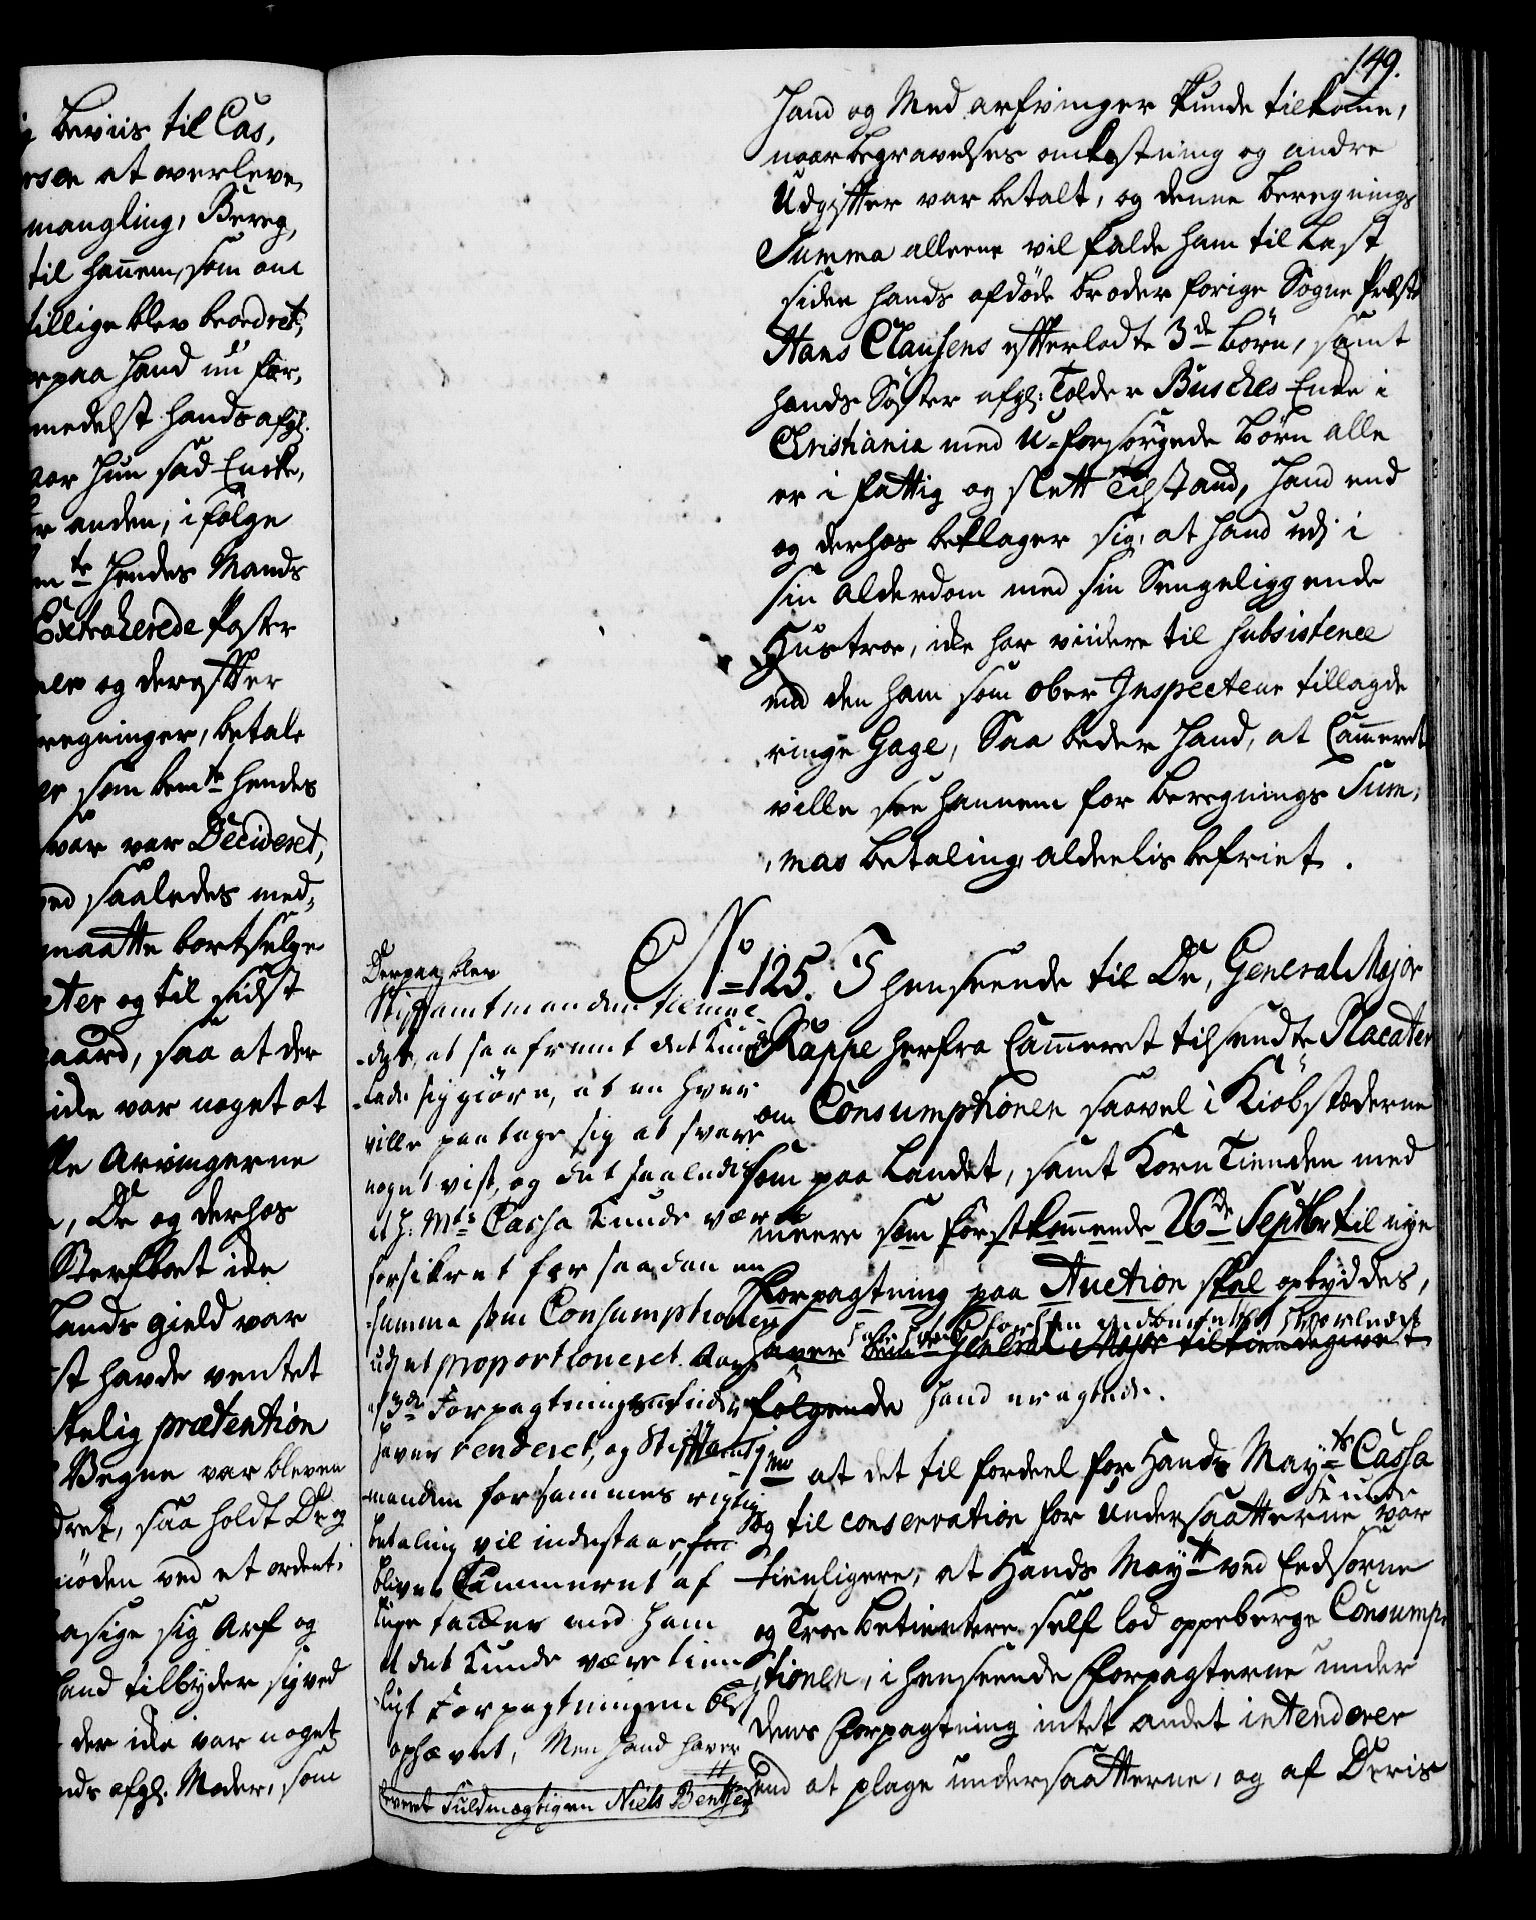 149.
beviis til Cas,
at overleve,
mangling, Bereg,
til hannem, som om
tillige blev beordret,
paa Hand nu for,
medelst hands afgl.
Hun sad Encke,
anden, i følge
Hendes Mands
Extraherede Poster
og derefter
regninger, betale
som bemte hendes
var Decideret,
saaledes med,
maatte bortselge
og til sidst
gaard, saa at der
icke var noget at
Arvingerne
De og derhos
Sterfboet icke
Lands gield var
havde ventet
prætention
Vegne var bleven
saa holdt De og
nøden ved et ordent,
sige sig Arf og
Hand tilbyder sig ved
der icke var noget
afgl. Moder, som
Hand og Med arfvinger kunde tilkomme,
naar begravelses omkostning og andre
Udgifter var betalt, og denne beregnings
Summa alleene vil falde ham til Last
siden hands afdøde broder forige Sogne Præst
Hans Clausens efterladte 3de børn, samt
hands Søster afgl: Tolder Busches Encke i
Christiania med U-forsørgede børn alle
er i fattig og slett Tilstand, Hand end
og derhos beklager sig, at Hand udj i
sin Alderdom med sin Sengeliggende
Hustroe, icke har viidere til subsistence
end den ham som ober Inspecteur tillagde
ringe Gage, Saa beder Hand, at Cammeret
ville see hannem for beregnings Sum,
,mas betaling aldeelis befriet.
No 125. I henseende til De, General Major
Kappe herfra Cammeret tilsendte Placater
om Consumptionen saavel i Kiøbstæderne
som paa Landet, samt Korn Tienden med
meere som førstkommende 26de Septbr til nye
Forpagtning paa Auction skal opbyddes,
haver bemte General Major tilkiendegivet
følgende Hand eragtede.
at det til fordeel for Hands Mayts Cassa
og til conservation for Undersaatterne var
tienligere, at Hands Mayt ved Eedsorne
og Troe betientere self lod oppeberge Consump,
tionen, i henseende Forpagterne under
deres Forpagtning intet andet intenderer
end at plage undersaatterne, og af Deris
Derpaa blev
Stiftamtmanden tilmel,
-det, at saafremt det kunde
-lade sig giøre, at en hver
ville paatage sig at svare
noget vist, og det saaledis
at H. Mts Cassa kunde være
forsikret for saadan en
-summa som Consumptionen
udj et proportioneret Aar
af 3de Forpagtnings tider
haver renderet, og Stiftamt
-manden for sammes rigtig
betaling vil indestaae,
bliver Cammeret af
lige tancker med ham
at det kunde være tien
-ligt Forpagtningen blev
ophævet, Men Hand haver
leveret Fuldmægtigen Niels Bentzen